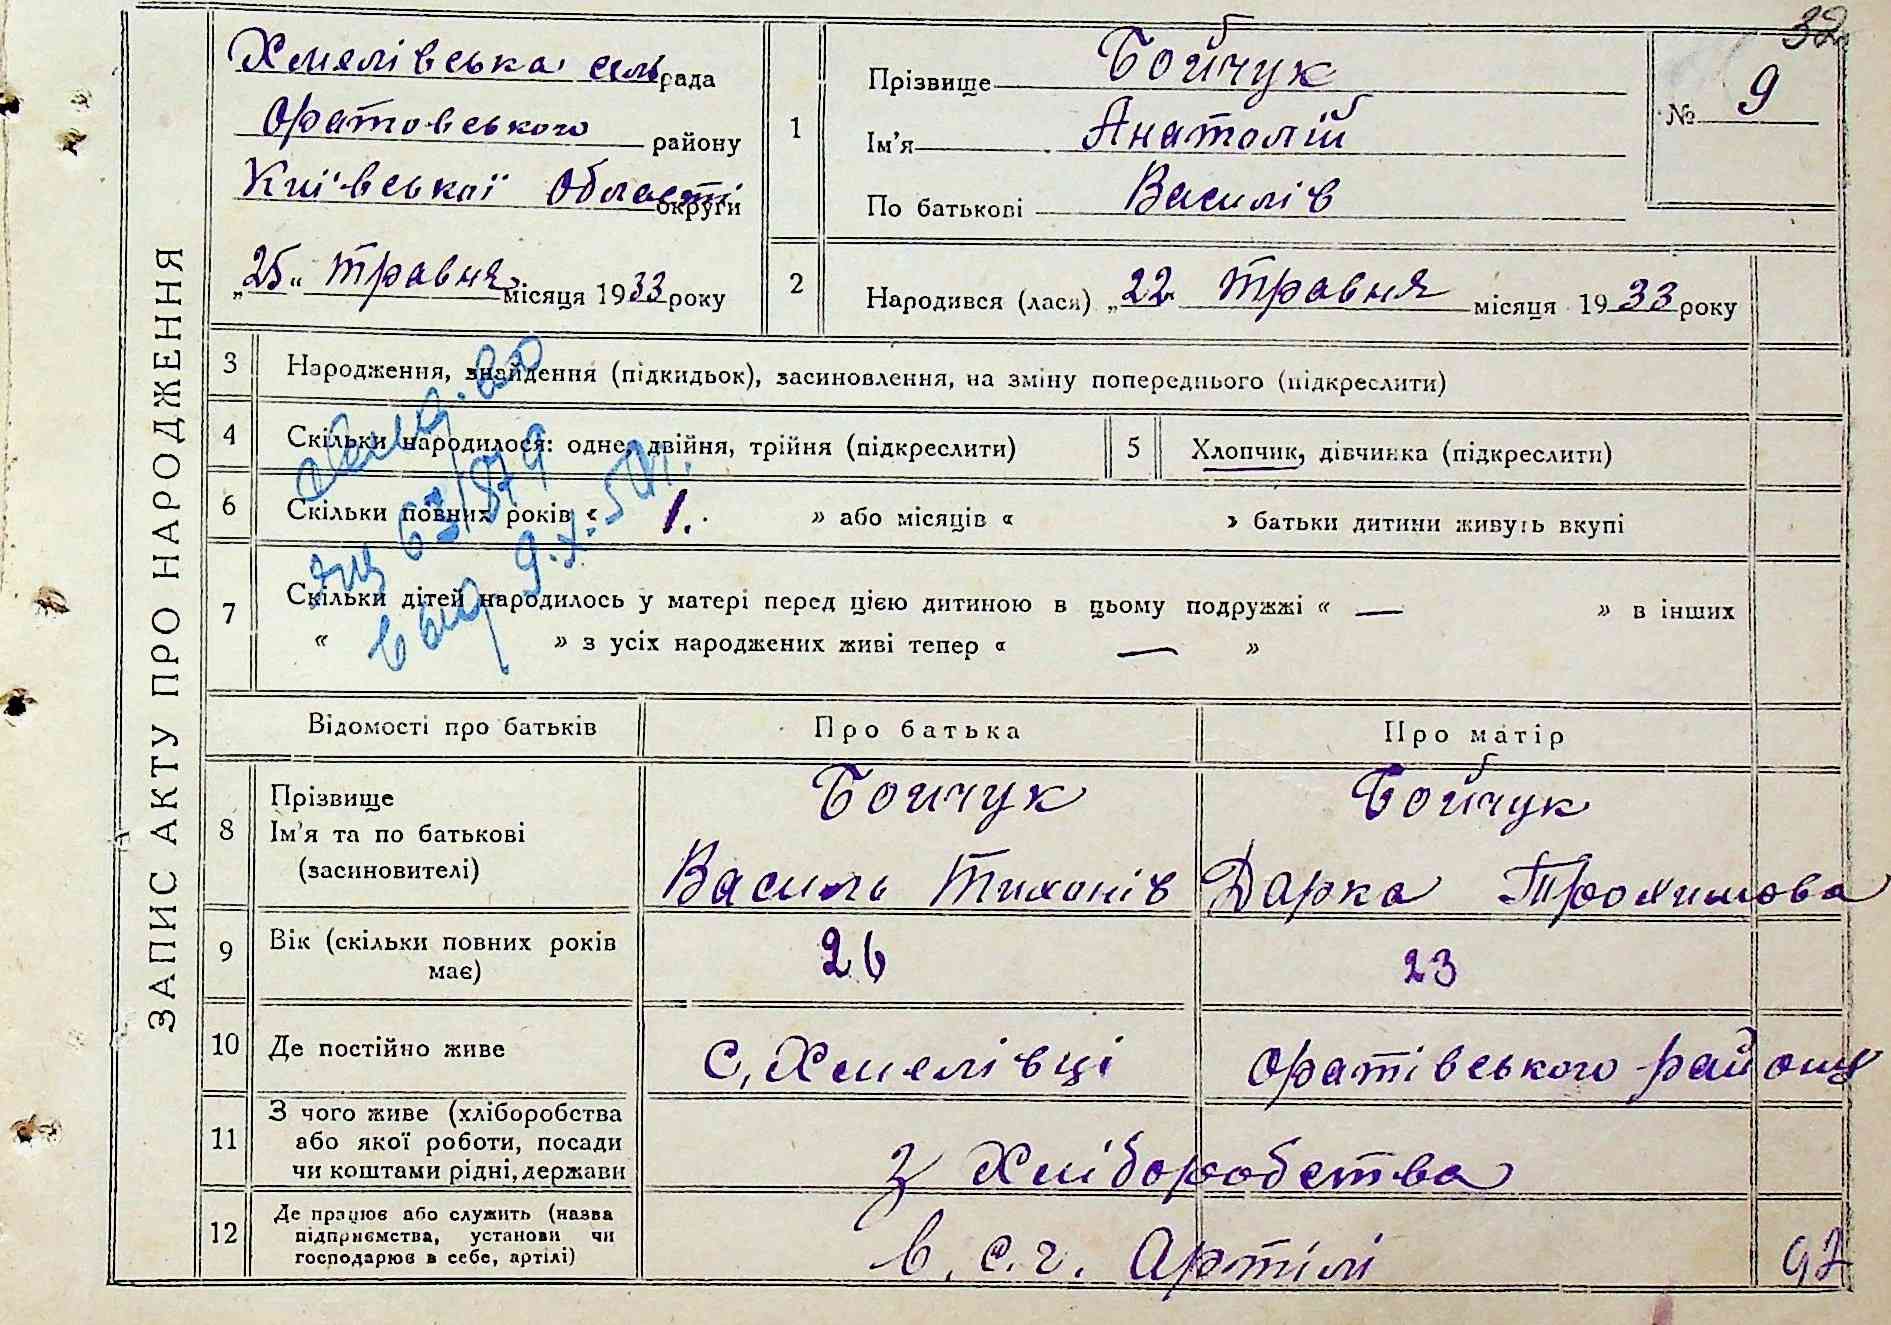 32
ЗАПИС АКТУ ПРО НАРОДЖЕННЯ
Хмелівська сільрада
Оратовського району
Київської Області округи
„25“ травня місяця 1933 року
1
Прізвище Бойчук
Ім'я Анатолій
По батькові Василів
№ 9
2
Народився (лася) „22 травня місяця 1933 року
3 Народження, знайдення (підкидьок), засиновлення, на зміну попереднього (підкреслити)
4 Скільки народилося: одне, двійня, трійня (підкреслити)
5 Хлопчик, дівчинка (підкреслити)
6 Скільки повних років « 1. » або місяців « » батьки дитини живуть вкупі
7 Скільки дітей народилось у матері перед цією дитиною в цьому подружжі « — » в інших
« » з усіх народжених живі тепер « — »
Відомості про батьків Про батька Про матір
8 Прізвище
Ім'я та по батькові
(засновителі)
Бойчук
Василь Тихонів
Бойчук
Дарка Трохимова
9 Вік (скільки повних років
має)
26 23
10 Де постійно живе с. Хмелівці Оратівського району
11 З чого живе (хліборобства
або якої роботи, посади
чи коштами рідні, держави
З Хліборобства
12 Де працює або служить (назва
підприємства, установи чи
господарює в себе, артілі)
в. с.г. Артілі
92